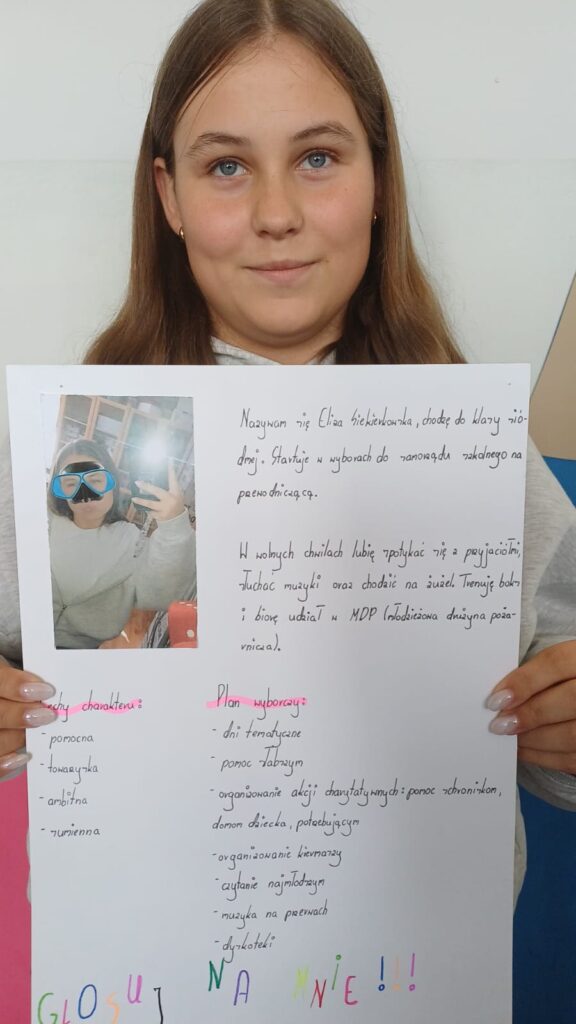 Nazywam się Eliza Siekierkowska, chodzę do klasy sió-
dmej. Startuje w wyborach do samorządu szkolnego na
przewodniczącą.
W wolnych chwilach lubię spotykać się z przyjaciółmi,
słuchać muzyki oraz chodzić na żużel. Trenuję boks
i biorę udział w MDP (młodzieżowa drużyna poża-
rnicza).
Cechy charakteru:
- pomocna
- towarzyska
- ambitna
- sumienna
Plan wyborczy:
- dni tematyczne
- pomoc słabszym
- organizowanie akcji charytatywnych: pomoc schroniskom,
domom dziecka, potrzebującym
- organizowanie kiermaszy
- czytanie najmłodszym
- muzyka na przerwach
- dyskoteki
GŁOSUJ NA MNIE!!!